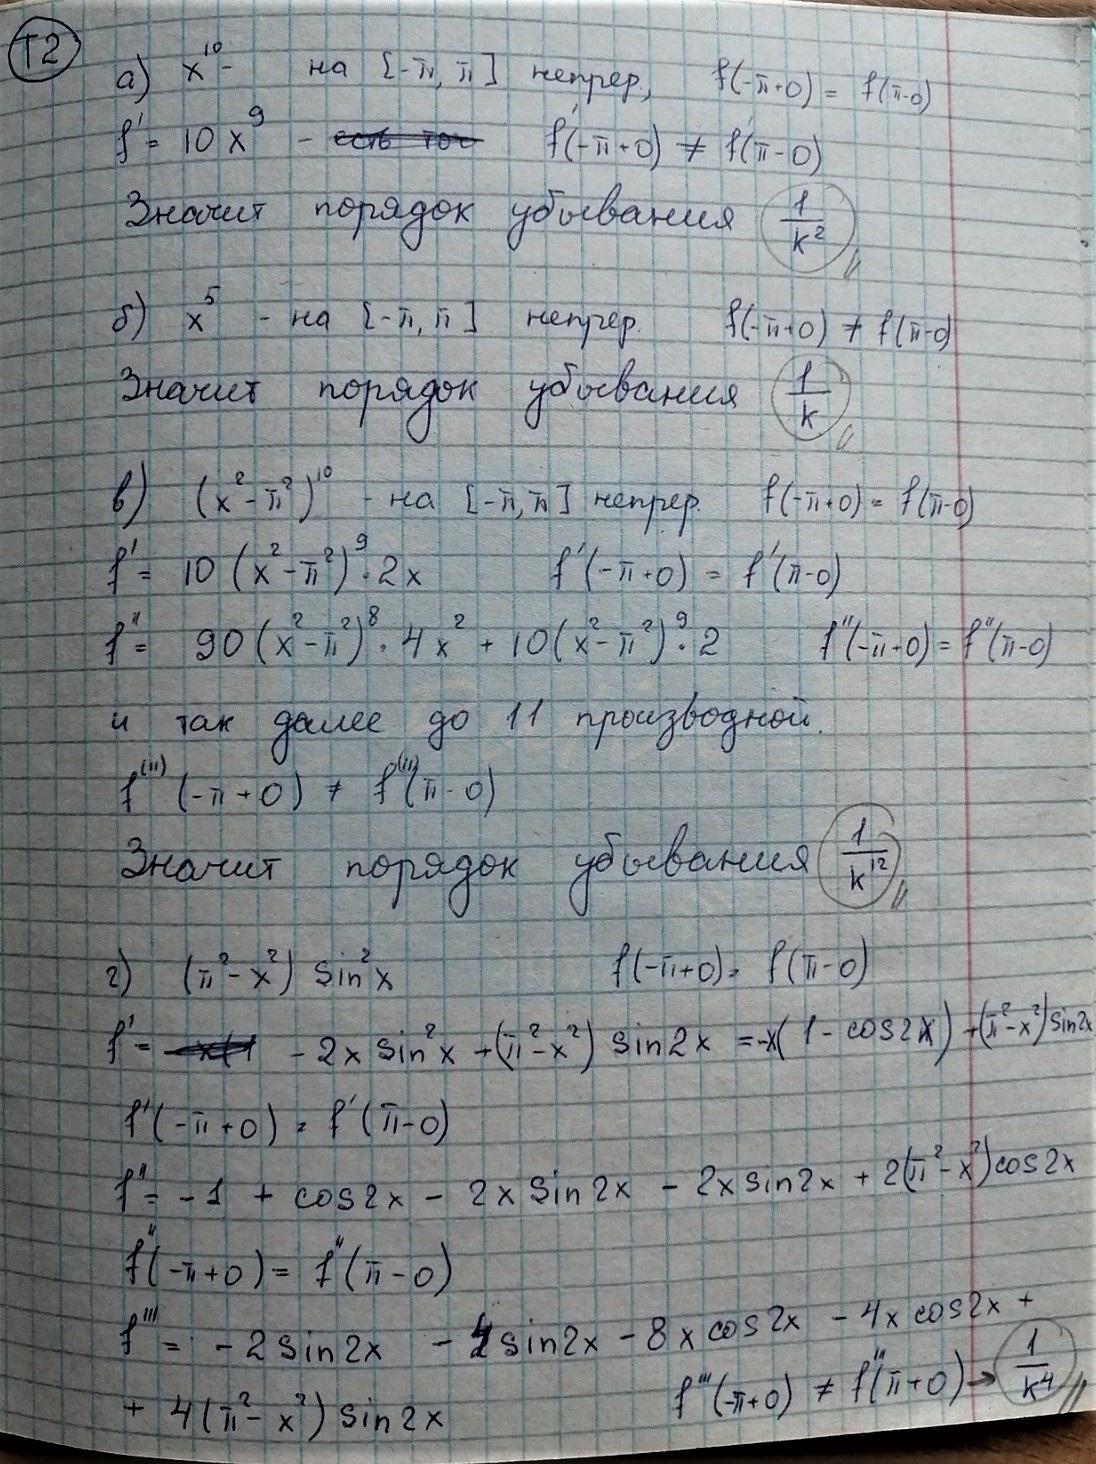 T2
а) x¹⁰ - на [-π, π] непрер., f(-π+0) = f(π-0)
f' = 10x⁹ - f'(-π+0) ≠ f'(π-0)
Значит порядок убывания 1/k²
б) x⁵ - на [-π, π] непрер. f(-π+0) ≠ f(π-0)
Значит порядок убывания 1/k
в) (x²-π²)¹⁰ - на [-π, π] непрер. f(-π+0) = f(π-0)
f' = 10(x²-π²)⁹·2x f'(-π+0) = f'(π-0)
f'' = 90(x²-π²)⁸·4x² + 10(x²-π²)⁹·2 f''(-π+0) = f''(π-0)
и так далее до 11 производной.
f⁽¹¹⁾(-π+0) ≠ f⁽¹¹⁾(π-0)
Значит порядок убывания 1/k¹²
г) (π²-x²) sin²x f(-π+0) = f(π-0)
f' = -2x sin²x + (π²-x²) sin2x = -x(1-cos2x) + (π²-x²) sin2x
f'(-π+0) = f'(π-0)
f'' = -1 + cos2x - 2x sin2x - 2x sin2x + 2(π²-x²)cos2x
f''(-π+0) = f''(π-0)
f''' = -2 sin2x - sin2x - 8x cos2x - 4x cos2x +
+ 4(π²-x²) sin2x f'''(-π+0) ≠ f'''(π+0) → 1/k⁴